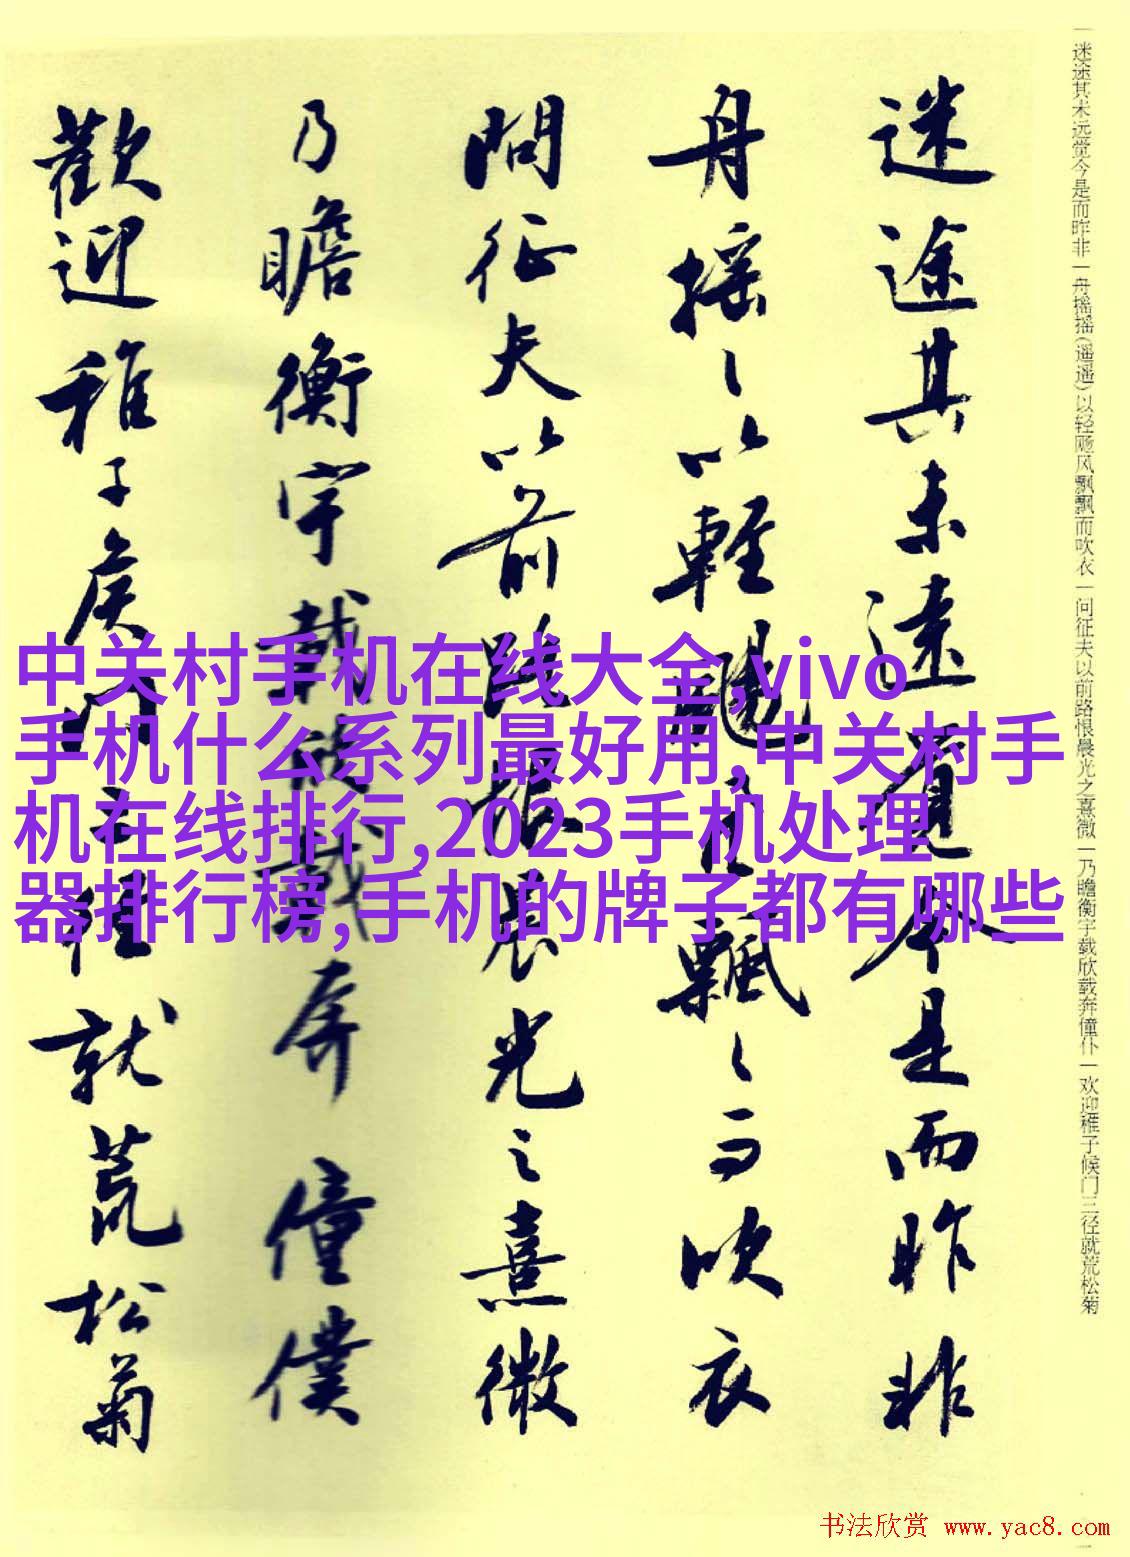 迷途其未远觉今是而昨非 一 舟摇摇(遥遥)以轻飏风飘飘而吹衣 一 问征夫以前路恨晨光之熹微 一 乃瞻衡宇载欣载奔僮仆 一 欢迎稚子候门三径就荒松菊
迷途其未遠覺今是而昨非
舟搖〻以輕颺風飄〻而吹衣
問征夫以前路恨晨光之熹微
乃瞻衡宇載欣載奔僮僕
歡迎稚子候門三徑就荒松菊
中关村手机在线大全,vivo
手机什么系列最好用,中关村手
机在线排行,2023手机处理
器排行榜,手机的牌子都有哪些
书法欣赏 www.yac8.com